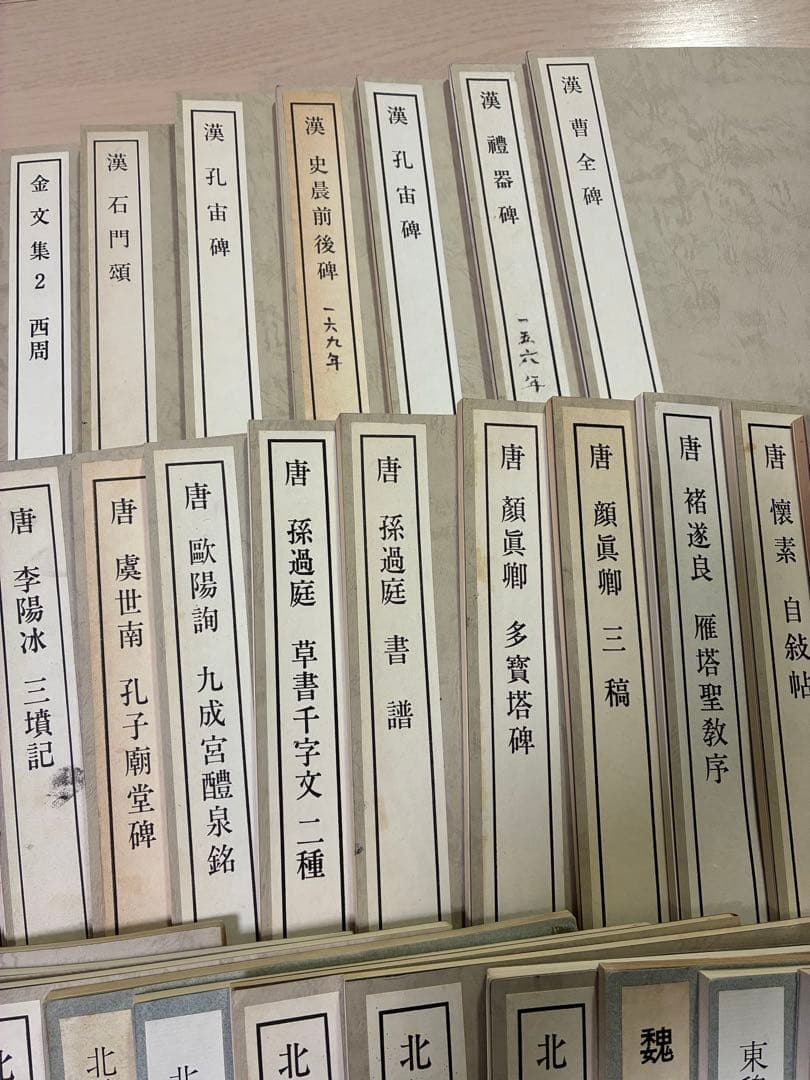 金文集2 西周
漢 石門頌
漢 孔宙碑
漢 史晨前後碑 一六九年
漢 孔宙碑
漢 禮器碑 一五六年
漢 曹全碑
唐 李陽冰 三墳記
唐 虞世南 孔子廟堂碑
唐 歐陽詢 九成宮醴泉銘
唐 孫過庭 草書千字文 二種
唐 孫過庭 書譜
唐 顏眞卿 多寶塔碑
唐 顏眞卿 三稿
唐 褚遂良 雁塔聖教序
唐 懷素 自敍帖
北
北
北
北
北
魏
東魏